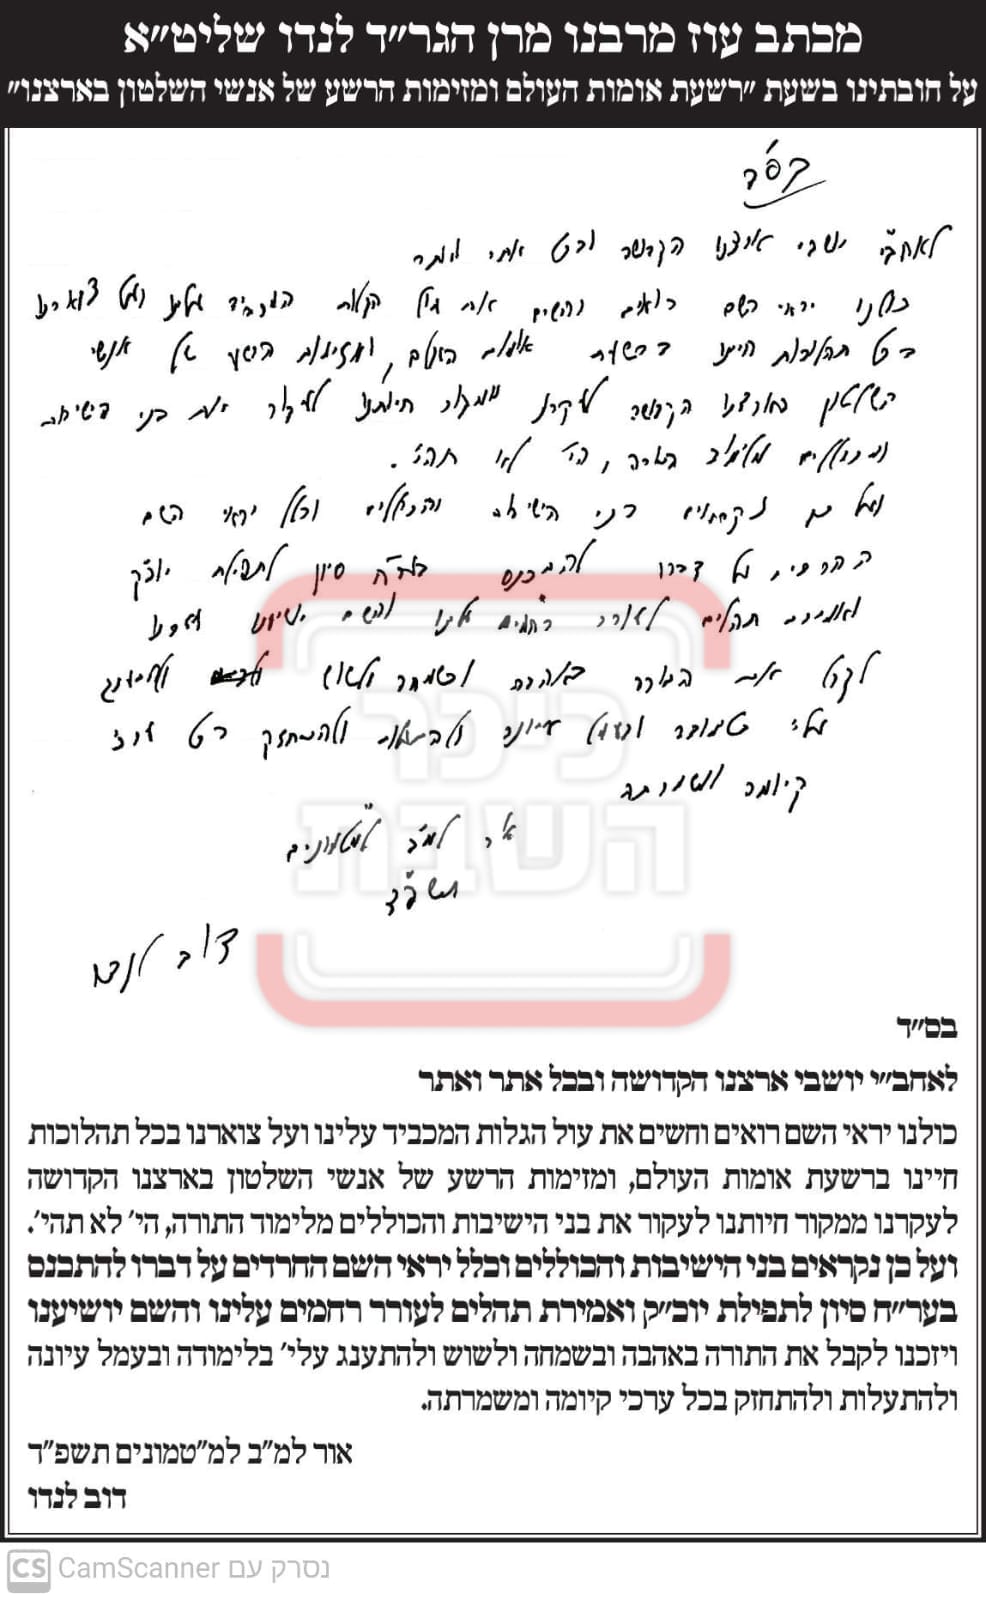 מכתב עוז מרבנו מרן הגר״ד לנדו שליט״א
על חובתינו בשעת ״רשעת אומות העולם ומזימות הרשע של אנשי השלטון בארצנו״
בס״ד
לאחב״י יושבי ארצנו הקדושה ובכל אתר ואתר
כולנו יראי השם רואים וחשים את עול הגלות המכביד עלינו ועל צוארנו
בכל תהלוכות חיינו ברשעת אומות העולם, ומזימות הרשע של אנשי
השלטון בארצנו הקדושה לעקרנו ממקור חיותנו לעקור את בני הישיבות
והכוללים מלימוד התורה, הי׳ לא תהי׳.
ועל כן נקראים בני הישיבות והכוללים וכלל יראי השם
החרדים על דברו להתכנס בער״ח סיון לתפילת יוכ״ק
ואמירת תהלים לעורר רחמים עלינו והשם יושיענו ויזכנו
לקבל את התורה באהבה ובשמחה ולשוש ולהתענג
עלי׳ בלימודה ובעמל עיונה ולהתעלות ולהתחזק בכל ערכי
קיומה ומשמרתה
אור למ״ב למ״טמונים
תשפ״ד
דוב לנדו
כיכר
השבת
בס״ד
לאחב״י יושבי ארצנו הקדושה ובכל אתר ואתר
כולנו יראי השם רואים וחשים את עול הגלות המכביד עלינו ועל צוארנו בכל תהלוכות
חיינו ברשעת אומות העולם, ומזימות הרשע של אנשי השלטון בארצנו הקדושה
לעקרנו ממקור חיותנו לעקור את בני הישיבות והכוללים מלימוד התורה, הי׳ לא תהי׳.
ועל כן נקראים בני הישיבות והכוללים וכלל יראי השם החרדים על דברו להתכנס
בער״ח סיון לתפילת יוכ״ק ואמירת תהלים לעורר רחמים עלינו והשם יושיענו
ויזכנו לקבל את התורה באהבה ובשמחה ולשוש ולהתענג עלי׳ בלימודה ובעמל עיונה
ולהתעלות ולהתחזק בכל ערכי קיומה ומשמרתה.
אור למ״ב למ״טמונים תשפ״ד
דוב לנדו
CS CamScanner נסרק עם